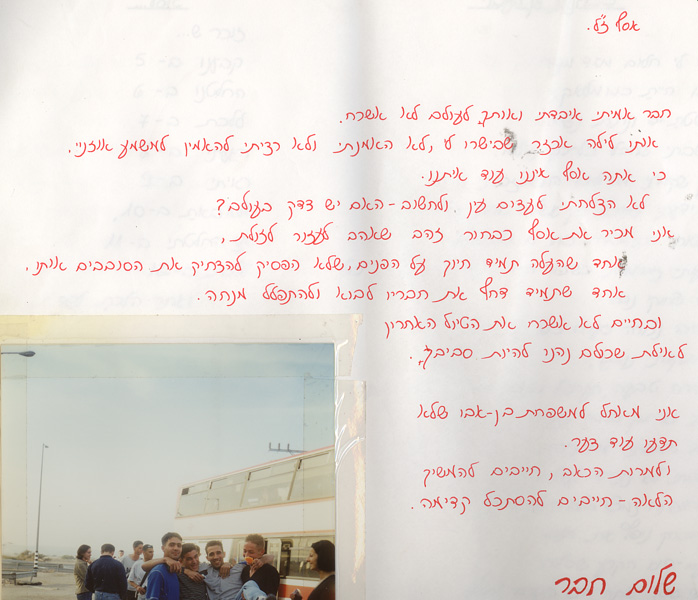 אסף ז"ל.
חבר אמיתי איבדתי ואותך לעולם לא אשכח.
אותו לילה אכזר שבישרו לי, לא האמנתי ולא רציתי להאמין למשמע אוזניי.
כי אתה אסף איננו עוד איתנו.
לא הצלחתי לעצים עין ולחשוב - האם יש צדק בעולם?
אני מכיר את אסף כבחור זהב שאהב לעזור לזולת,
אחד שהעלה תמיד חיוך על הפנים, שלא הפסיק להצחיק את הסובבים אותו,
אחד שתמיד דחף את חבריו לבוא ולהתפלל מנחה.
ובחיים לא אשכח את הטיול האחרון
לאילת שכולם נהנו להיות סביבך.
אני מאחל למשפחת בן-אבו שלא
תדעו עוד צער.
ולמרות הכאב, חייבים להמשיך
הלאה - חייבים להסתכל קדימה.
שלום חבר